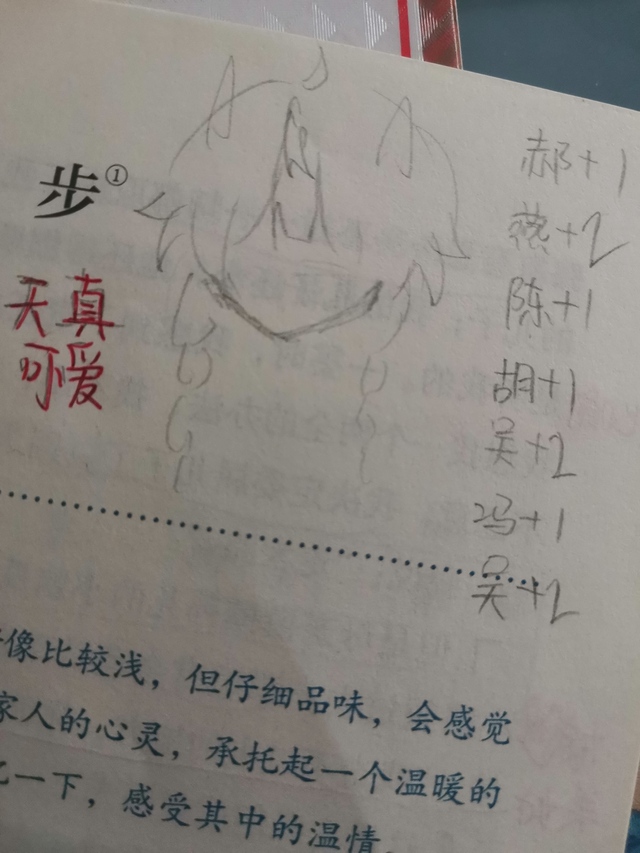 步①
天真
可爱
郝+1
燕+2
陈+1
胡+1
吴+2
冯+1
吴+2
像比较浅，但仔细品味，会感觉
家人的心灵，承托起一个温暖的
一下，感受其中的温情